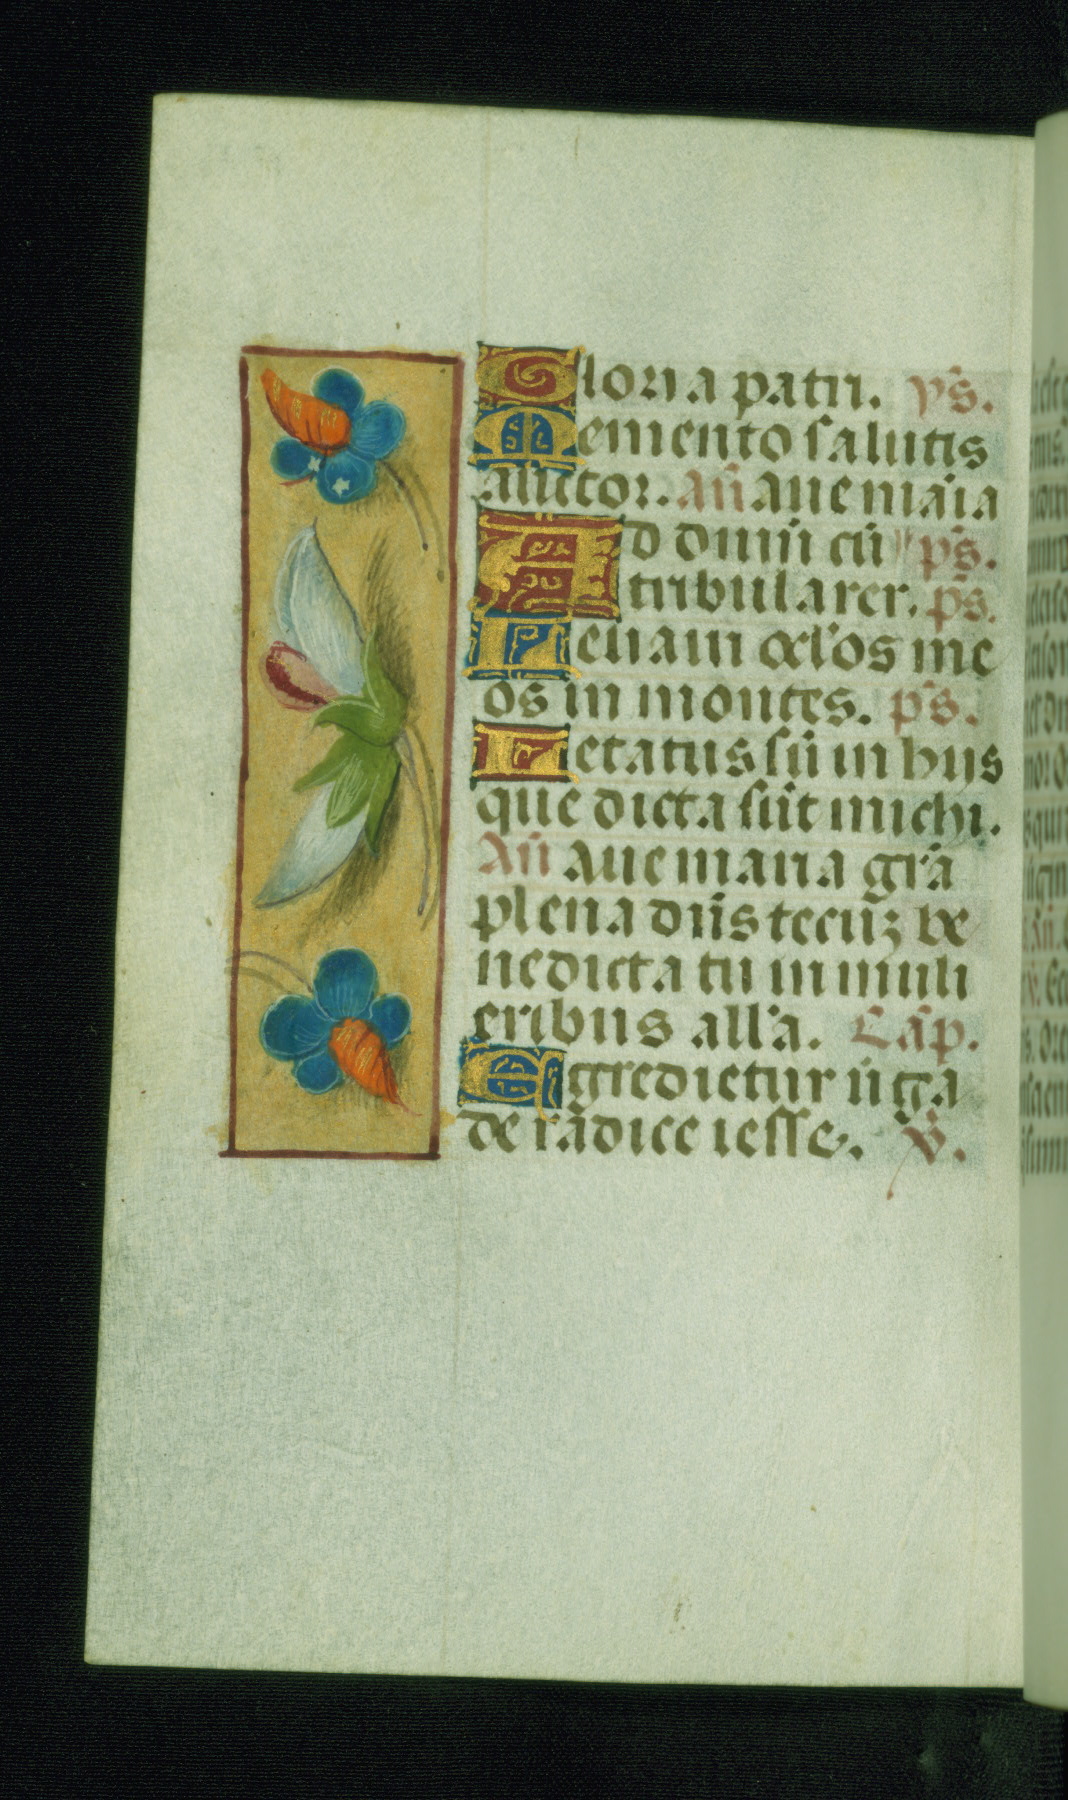 Gloria patri. ps̄.
Memento salutis
auctor. Añ aue maria
Ad dnm̄ cū ps̄.
tribularer. ps̄.
Leuaui ocl'os me
os in montes. ps̄.
Letatus sū in hiis
que dicta sūt michi.
Añ aue maria grā
plena dn̄s tecūz be
nedicta tu in muli
eribus all'a. Cap̄.
Egredietur uirga
de radice iesse. V̄.